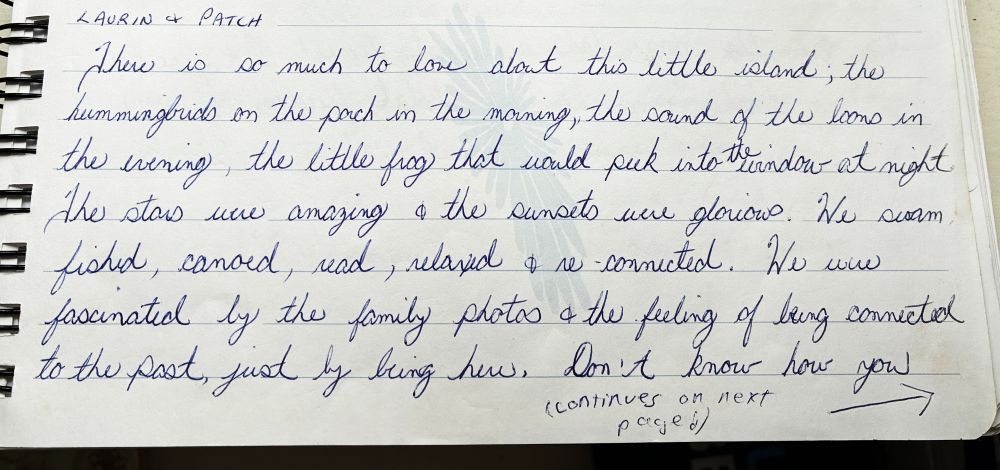 LAURIN & PATCH
There is so much to love about this little island; the
hummingbirds on the porch in the morning, the sound of the loons in
the evening, the little frog that would peek into the window at night.
The stars were amazing & the sunsets were glorious. We swam,
fished, canoed, read, relaxed & re-connected. We were
fascinated by the family photos & the feeling of being connected
to the past, just by being here. Don't know how you
(continues on next
page)